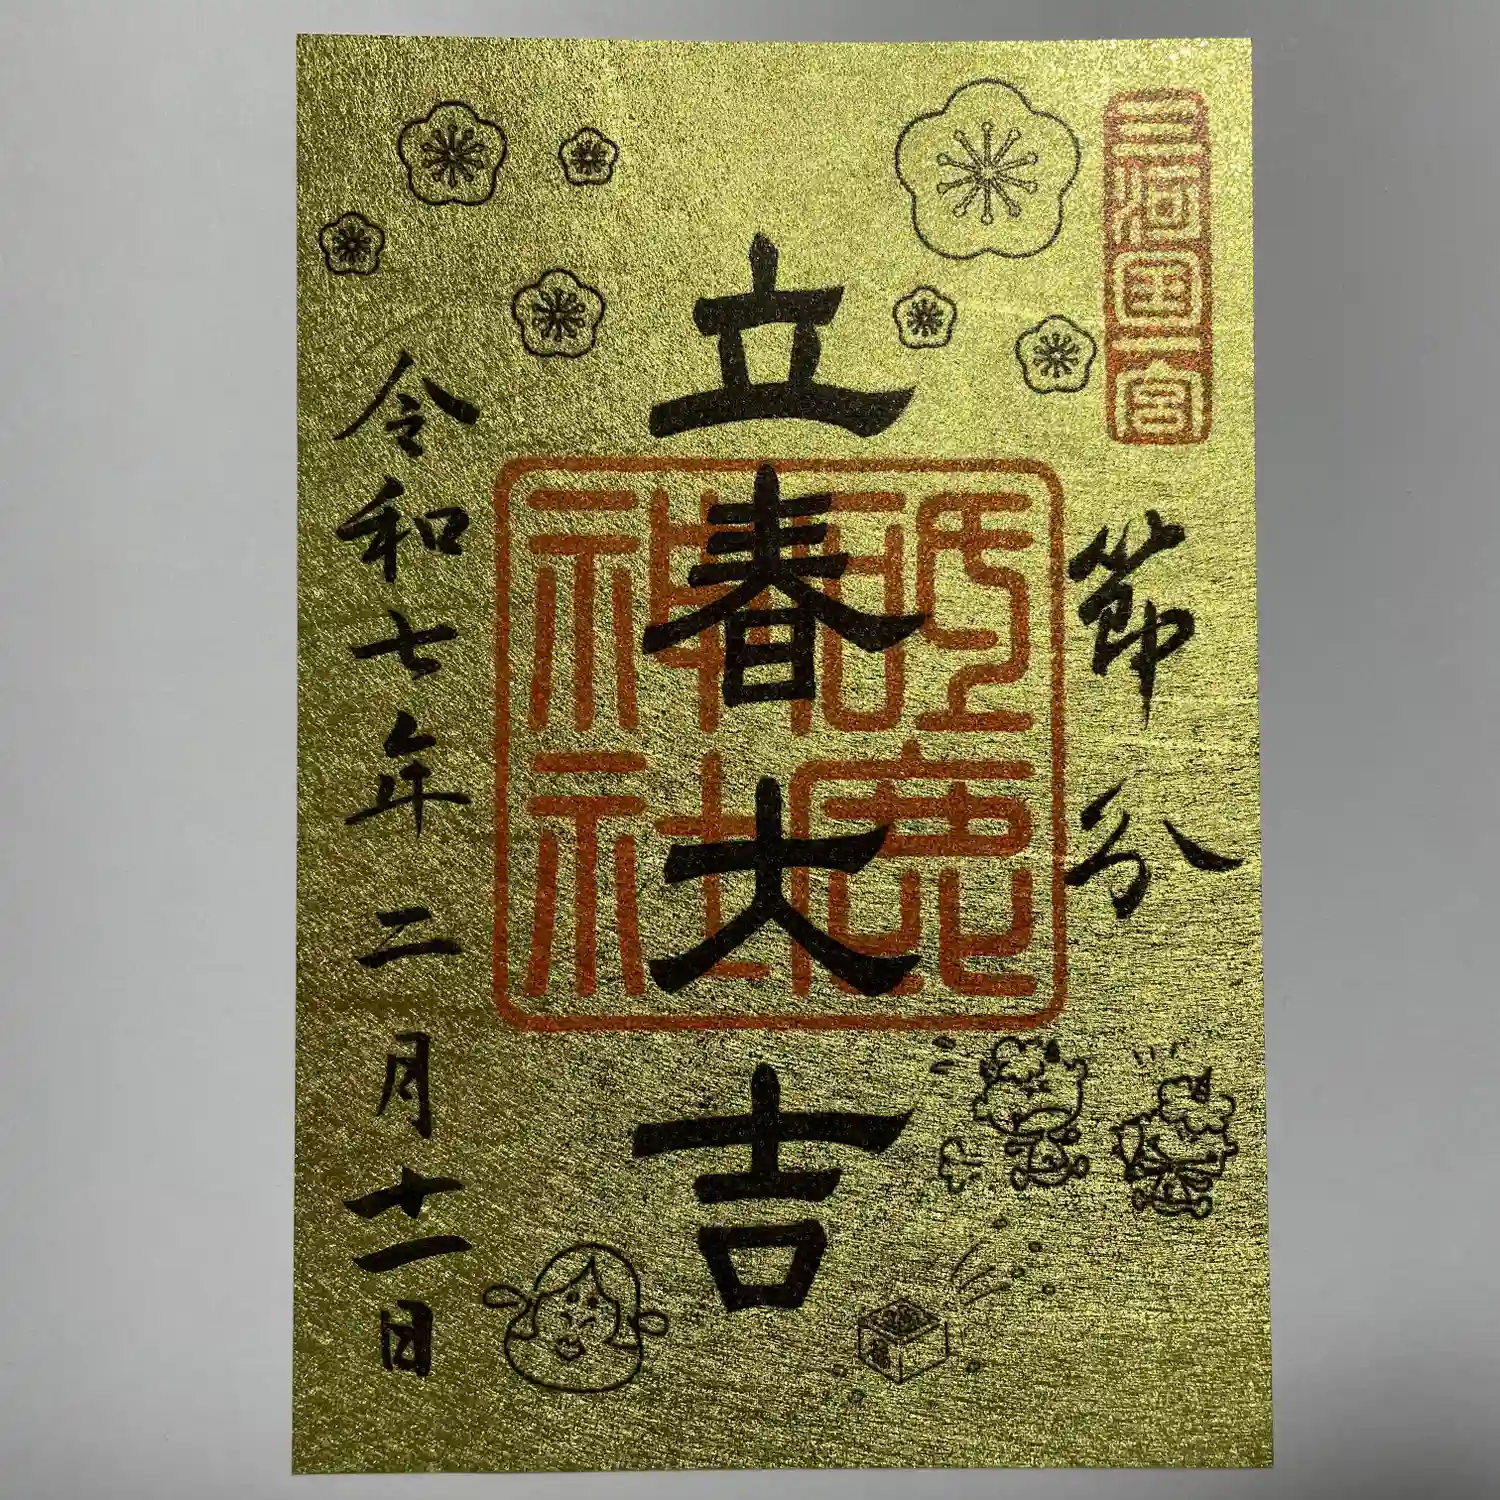 三河国一宮
節分
立春大吉
砥鹿神社
令和七年二月十一日
福